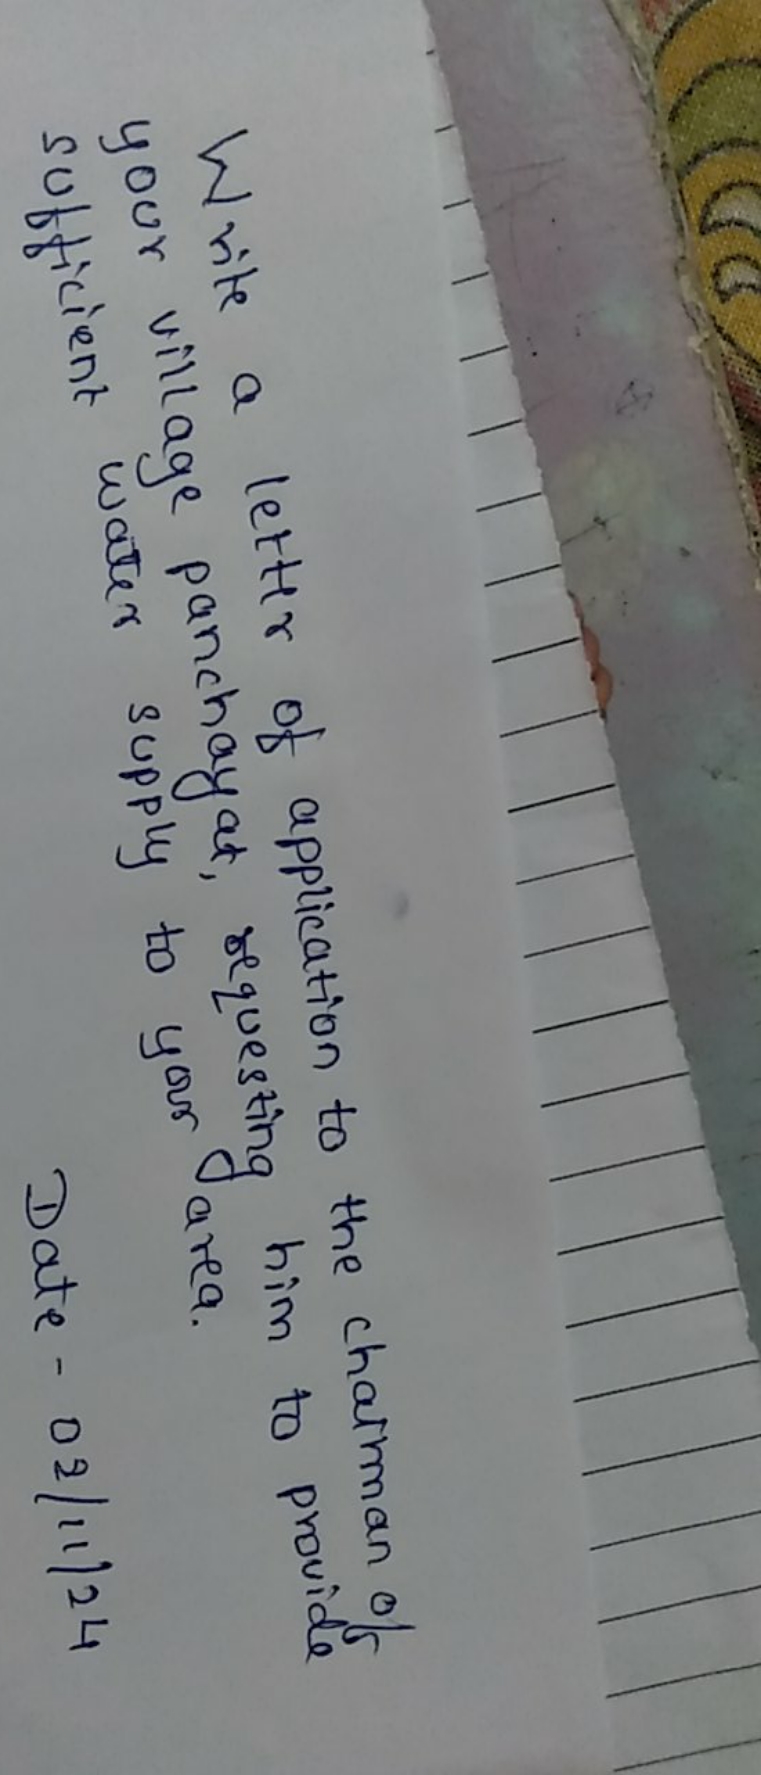 Write a letter of application to the chairman of
your village panchayat, requesting him to provide
sufficient water supply to your area.
Date - 02/11/24